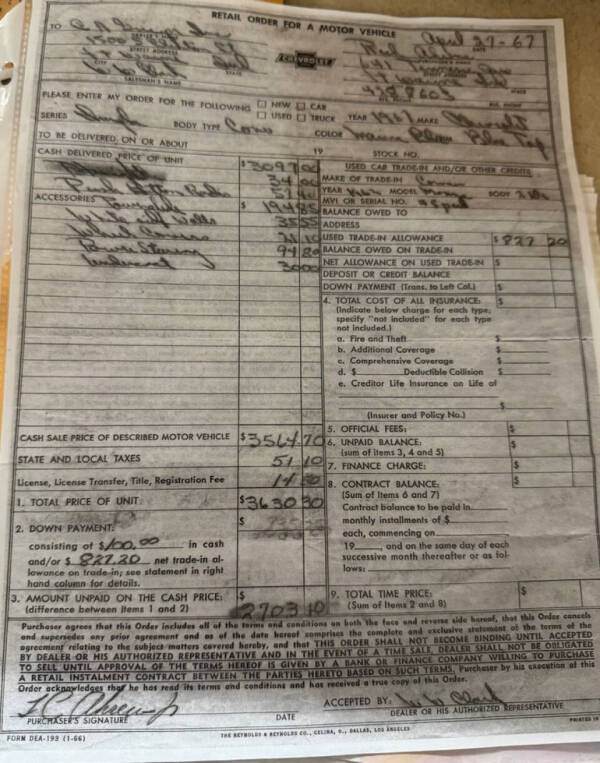 RETAIL ORDER FOR A MOTOR VEHICLE
TO
April 27-67
DATE
1500
STREET ADDRESS
CHEVROLET
641
CITY STATE
SALESMAN'S NAME
PLEASE ENTER MY ORDER FOR THE FOLLOWING ☐ NEW ☐ CAR
☐ USED ☐ TRUCK YEAR 1967 MAKE Chevrolet
SERIES BODY TYPE
COLOR
TO BE DELIVERED ON OR ABOUT 19 STOCK NO.
CASH DELIVERED PRICE OF UNIT $ 3097 00
34 00
Push Button Radio
ACCESSORIES Powerglide $ 194 85
White Wall 35 55
Wheel Covers 21 10
Power Steering 94 80
30 00
CASH SALE PRICE OF DESCRIBED MOTOR VEHICLE $ 3564 70
STATE AND LOCAL TAXES 51 10
License, License Transfer, Title, Registration Fee 14 50
1. TOTAL PRICE OF UNIT: $ 3630 30
2. DOWN PAYMENT: $
consisting of $ 100.00 in cash
and/or $ 827.20 net trade-in al-
lowance on trade-in; see statement in right
hand column for details.
3. AMOUNT UNPAID ON THE CASH PRICE: $
(difference between Items 1 and 2) 2703 10
USED CAR TRADE-IN AND/OR OTHER CREDITS
MAKE OF TRADE-IN
YEAR MODEL BODY
MVI OR SERIAL NO.
BALANCE OWED TO
ADDRESS
USED TRADE-IN ALLOWANCE $ 827 20
BALANCE OWED ON TRADE-IN
NET ALLOWANCE ON USED TRADE-IN $
DEPOSIT OR CREDIT BALANCE
DOWN PAYMENT (Trans. to Left Col.) $
4. TOTAL COST OF ALL INSURANCE: $
(Indicate below charge for each type;
specify "not included" for each type
not included.)
a. Fire and Theft $
b. Additional Coverage $
c. Comprehensive Coverage $
d. $ Deductible Collision $
e. Creditor Life Insurance on Life of
$
(Insurer and Policy No.)
5. OFFICIAL FEES: $
6. UNPAID BALANCE: $
(sum of items 3, 4 and 5)
7. FINANCE CHARGE: $
8. CONTRACT BALANCE: $
(Sum of Items 6 and 7)
Contract balance to be paid in
monthly installments of $
each, commencing on
19 , and on the same day of each
successive month thereafter or as fol-
lows:
9. TOTAL TIME PRICE: $
(Sum of Items 2 and 8)
Purchaser agrees that this Order includes all of the terms and conditions on both the face and reverse side hereof, that this Order cancels
and supersedes any prior agreement and as of the date hereof comprises the complete and exclusive statement of the terms of the
agreement relating to the subject matters covered hereby, and that THIS ORDER SHALL NOT BECOME BINDING UNTIL ACCEPTED
BY DEALER OR HIS AUTHORIZED REPRESENTATIVE AND IN THE EVENT OF A TIME SALE, DEALER SHALL NOT BE OBLIGATED
TO SELL UNTIL APPROVAL OF THE TERMS HEREOF IS GIVEN BY A BANK OR FINANCE COMPANY WILLING TO PURCHASE
A RETAIL INSTALMENT CONTRACT BETWEEN THE PARTIES HERETO BASED ON SUCH TERMS. Purchaser by his execution of this
Order acknowledges that he has read its terms and conditions and has received a true copy of this Order.
ACCEPTED BY:
PURCHASER'S SIGNATURE DATE DEALER OR HIS AUTHORIZED REPRESENTATIVE
FORM DEA-192 (1-66) THE REYNOLDS & REYNOLDS CO., CELINA, O., DALLAS, LOS ANGELES PRINTED IN